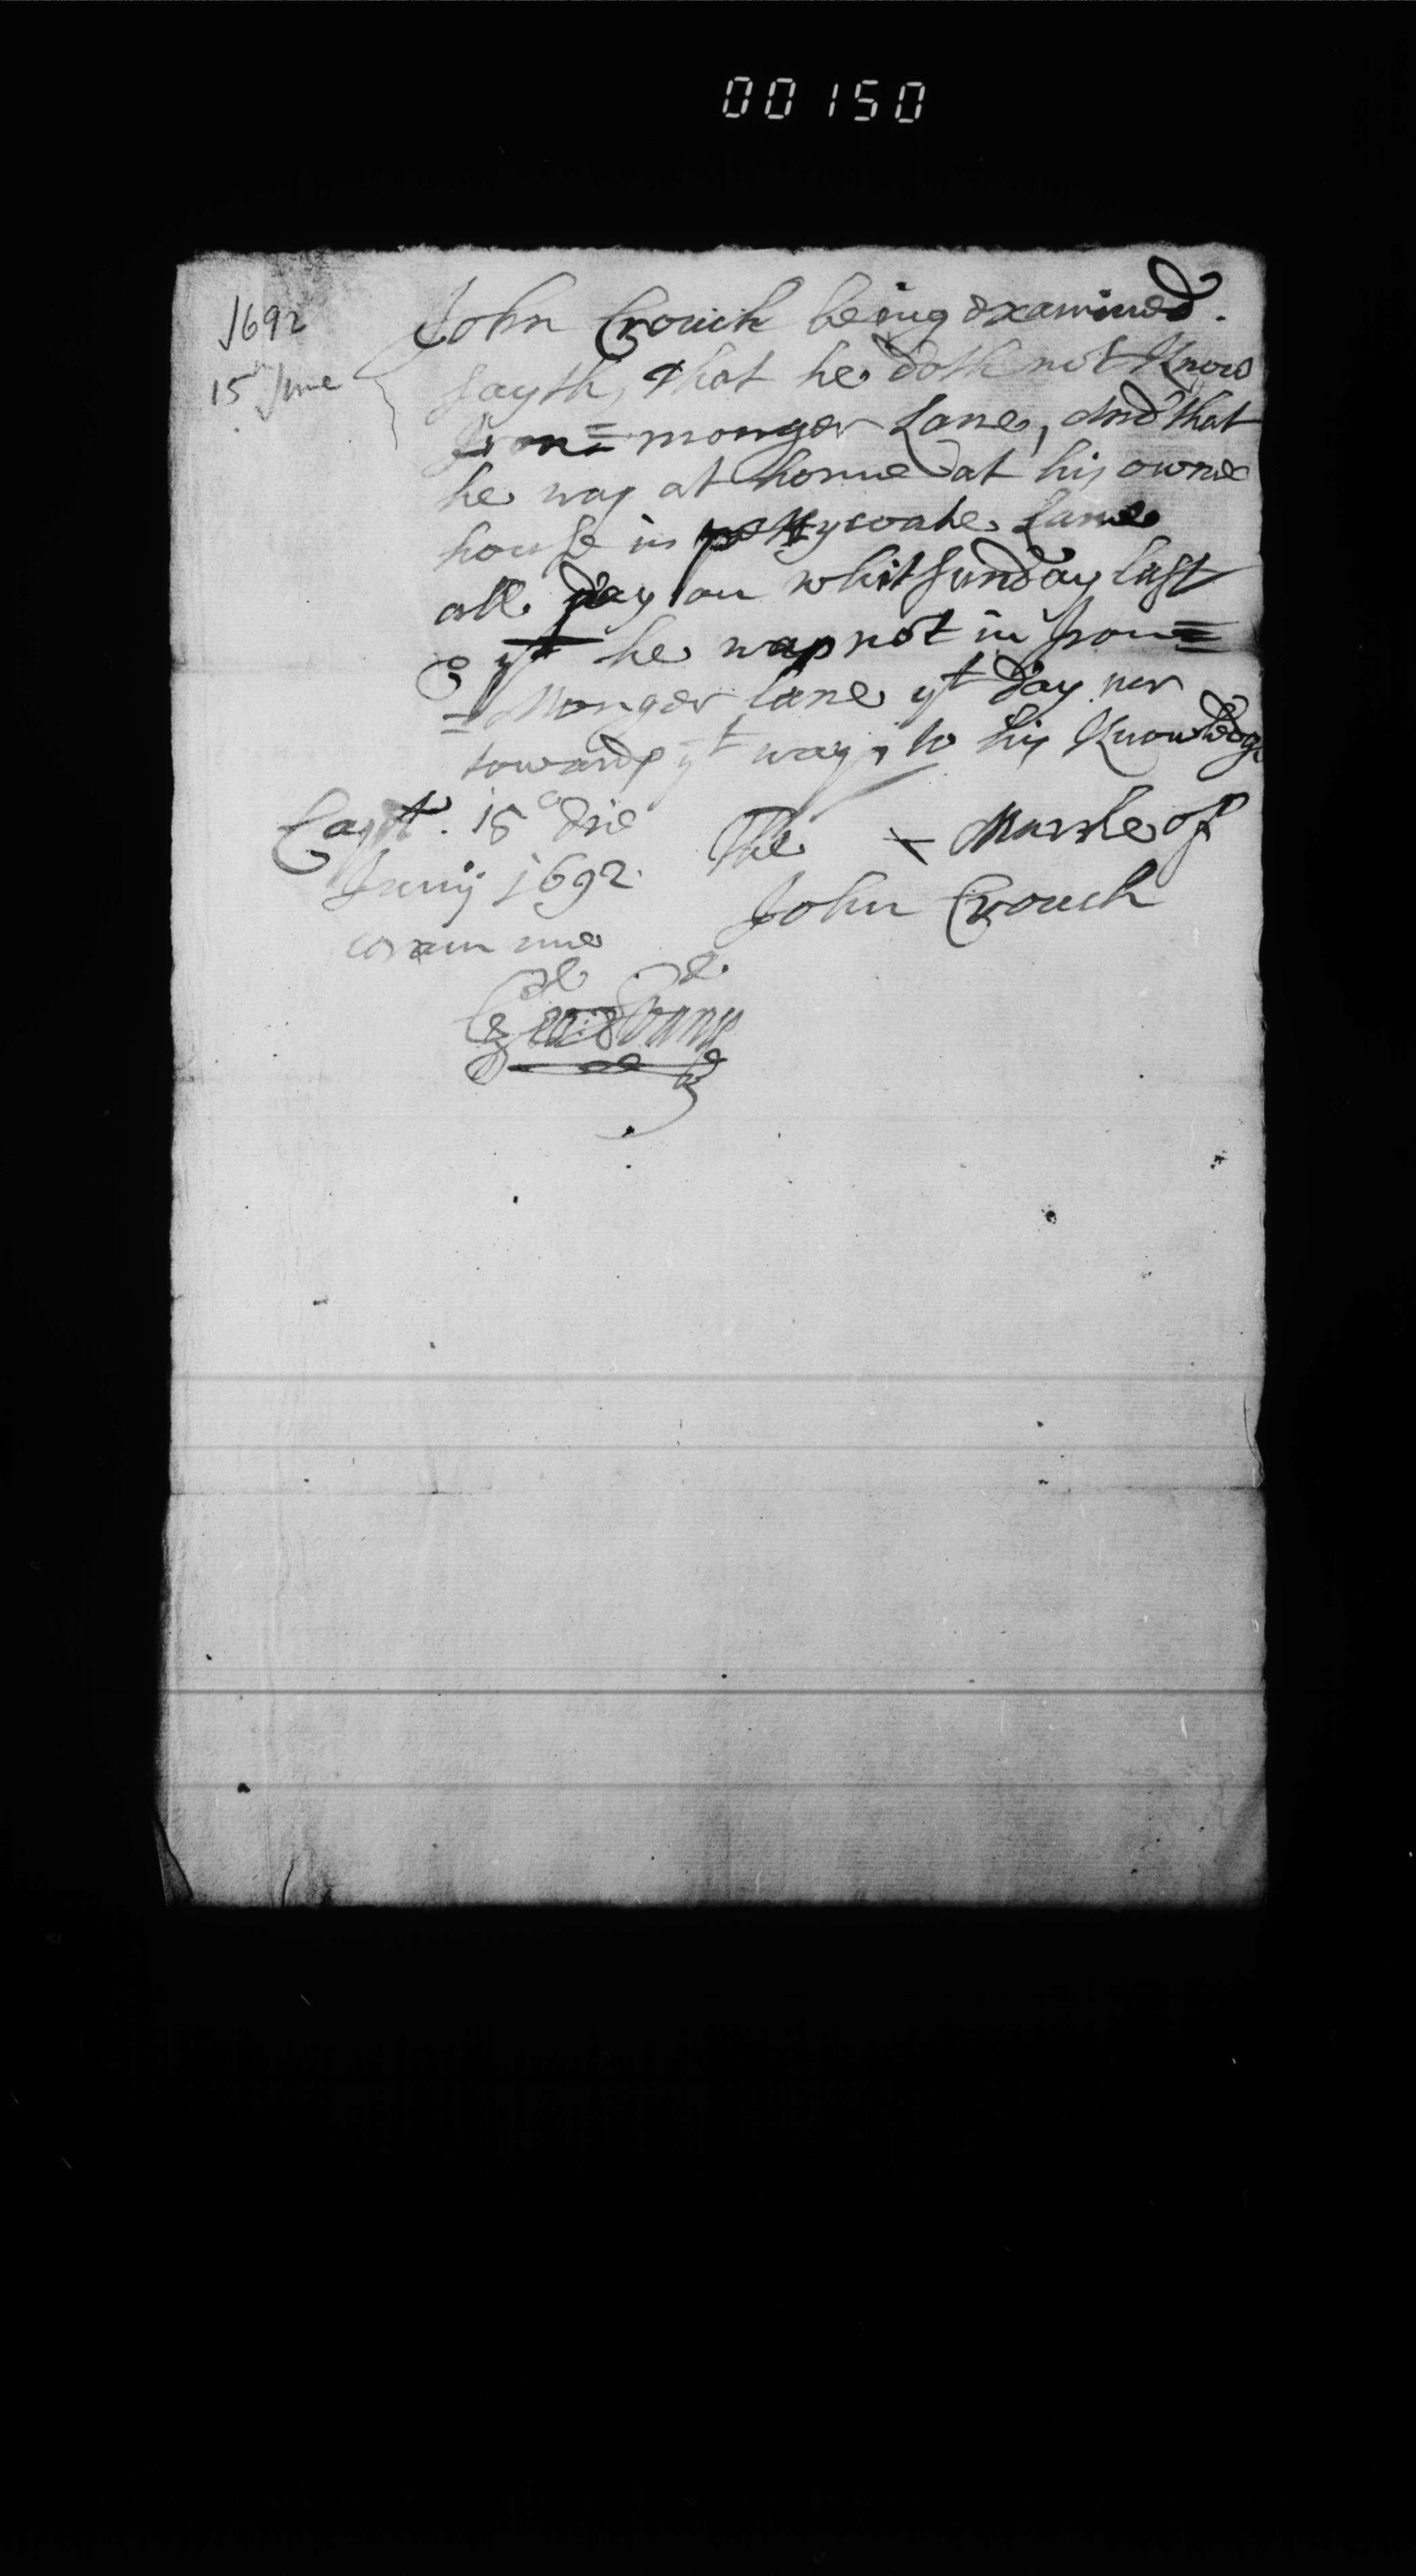 00150
1692
15 June
John Crouch being examined.
sayth, that he doth not Know
Iron= monger Lane, And that
he was at home at his owne
house in pettycoate Lane
all day on whitsunday last
& yt he was not in Iron=
=Monger lane yt day nor
towards yt way, to his Knowledge
Capt. 15o die
Junij 1692.
coram me
The x Marke of
John Crouch
Geo: Evans